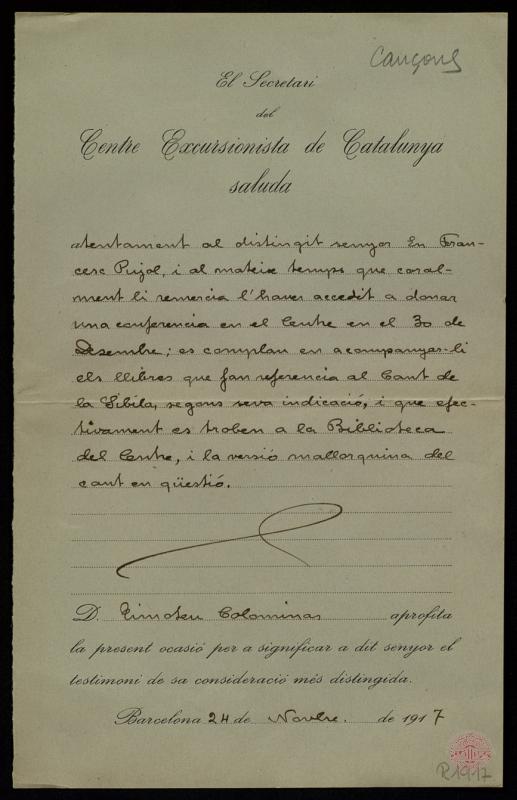 Cançons
El Secretari
del
Centre Excursionista de Catalunya
saluda
atentament al distingit senyor En Fran-
cesc Pujol, i al mateix temps que coral-
ment li remercia l'haver accedit a donar
una conferencia en el Centre en el 30 de
Desembre; es complau en acompanyar-li
els llibres que fan referencia al Cant de
la Sibila, segons seva indicació, i que efec-
tivament es troben a la Biblioteca
del Centre, i la versió mallorquina del
cant en qüestió.
D. Timoteu Colominas aprofita
la present ocasió per a significar a dit senyor el
testimoni de sa consideració més distingida.
Barcelona 24 de Novbre. de 1917
R1917